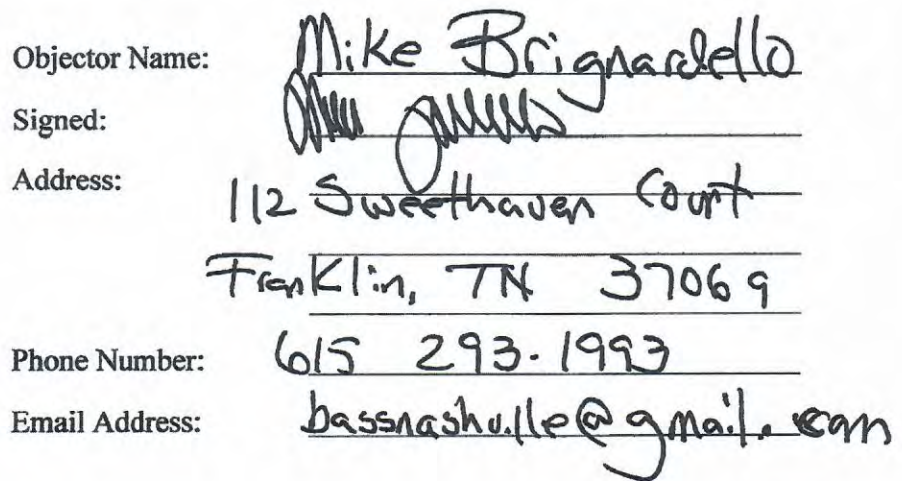 Objector Name: Mike Brignardello
Signed:
Address: 112 Sweethaven Court
Franklin, TN 37069
Phone Number: 615 293-1993
Email Address: bassnashville@gmail.com